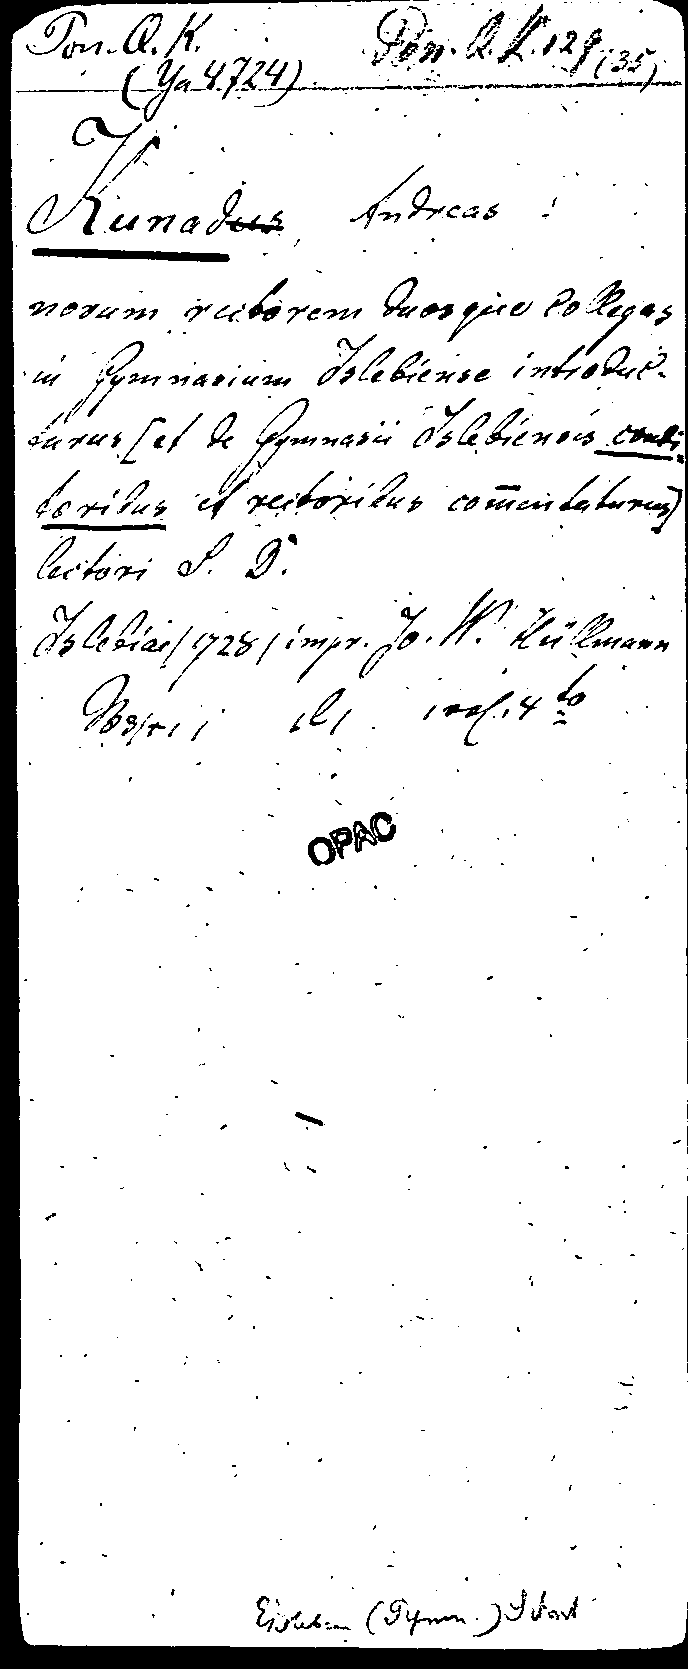 Pon. Q. K. Pon. Q. K. 129 (35)
(Ya 4724)
Kunadus, Andreas :
novum rectorem duosque collegas
in Gymnasium Islebiense introduc-
turus [et de Gymnasii Islebiensis condi-
toribus et rectoribus com̄entaturus]
lectori S. D.
Islebiae, 1728, impr. Jo. W. Hüllmann
4 to
OPAC
Eisleben (Gymn.) Stadt